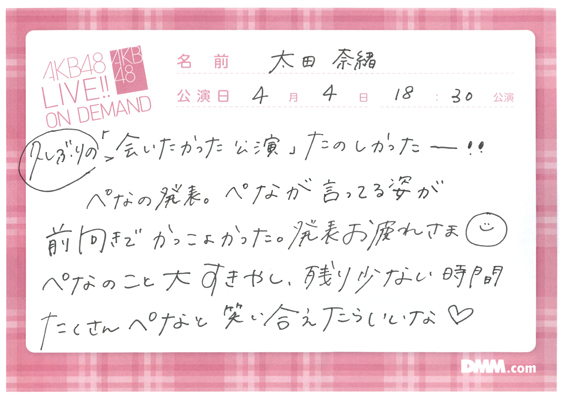 AKB48
LIVE!!
ON DEMAND
AKB
48
名前 太田 奈緒
公演日 4月 4日 18:30 公演
久しぶりの「会いたかった公演」たのしかったー!!
ぺなの発表。ぺなが言ってる姿が
前向きでかっこよかった。発表お疲れさま
ぺなのこと大すきやし、残り少ない時間
たくさんぺなと笑い合えたらいいな♡
DMM.com